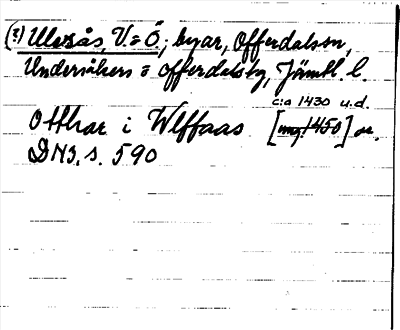 (?) Ulvsås, V. o Ö., byar, Offerdalssn,
Undersåkers o Offerdals tg, Jämtl. l.
c:a 1430 u.d.
Otthar i Wlffaas [omg. 1450] or.
DN3, s. 590